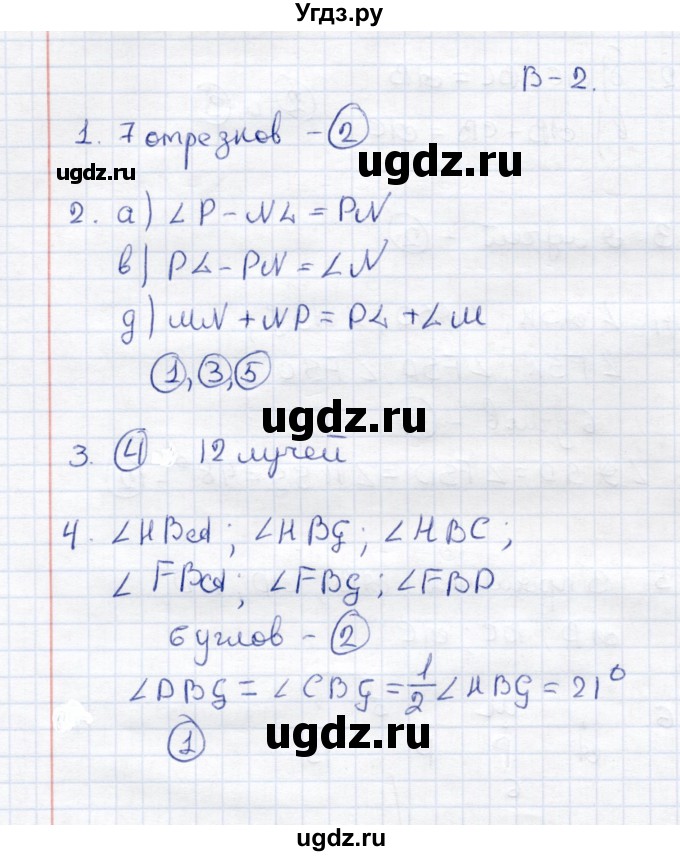 Угдз.ру
В-2.
1. 7 отрезков - 2
ugdz.ru
ugdz.ru
2. а) LP - NL = PN
в) PL - PN = LN
д) MN + NP = PL + LM
1, 3, 5
ugdz.ru
3. 4 12 лучей
4. ∠HBA; ∠HBG; ∠HBC;
∠FBA; ∠FBG; ∠FBD
6 углов - 2
∠DBG = ∠CBG = 1/2 ∠HBG = 21°
1
ugdz.ru
ugdz.ru